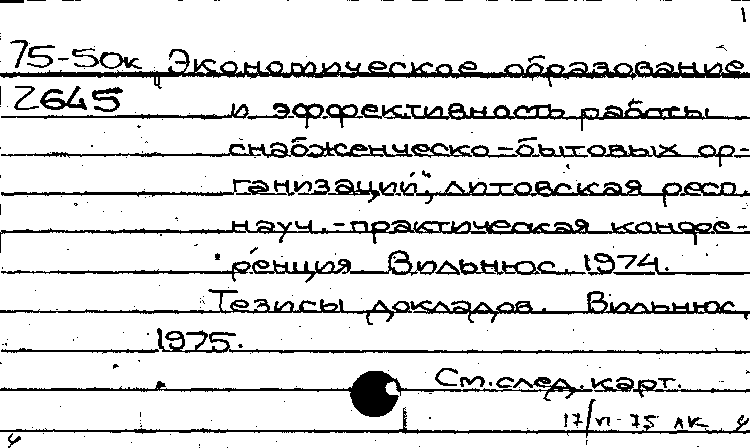 1
75-50к „Экономическое образование
2645 и эффективность работы
снабженческо-бытовых ор-
ганизаций", литовская респ.
науч.-практическая конфе-
ренция. Вильнюс. 1974.
Тезисы докладов. Вильнюс,
1975.
См.след.карт.
17/VI-75 лк